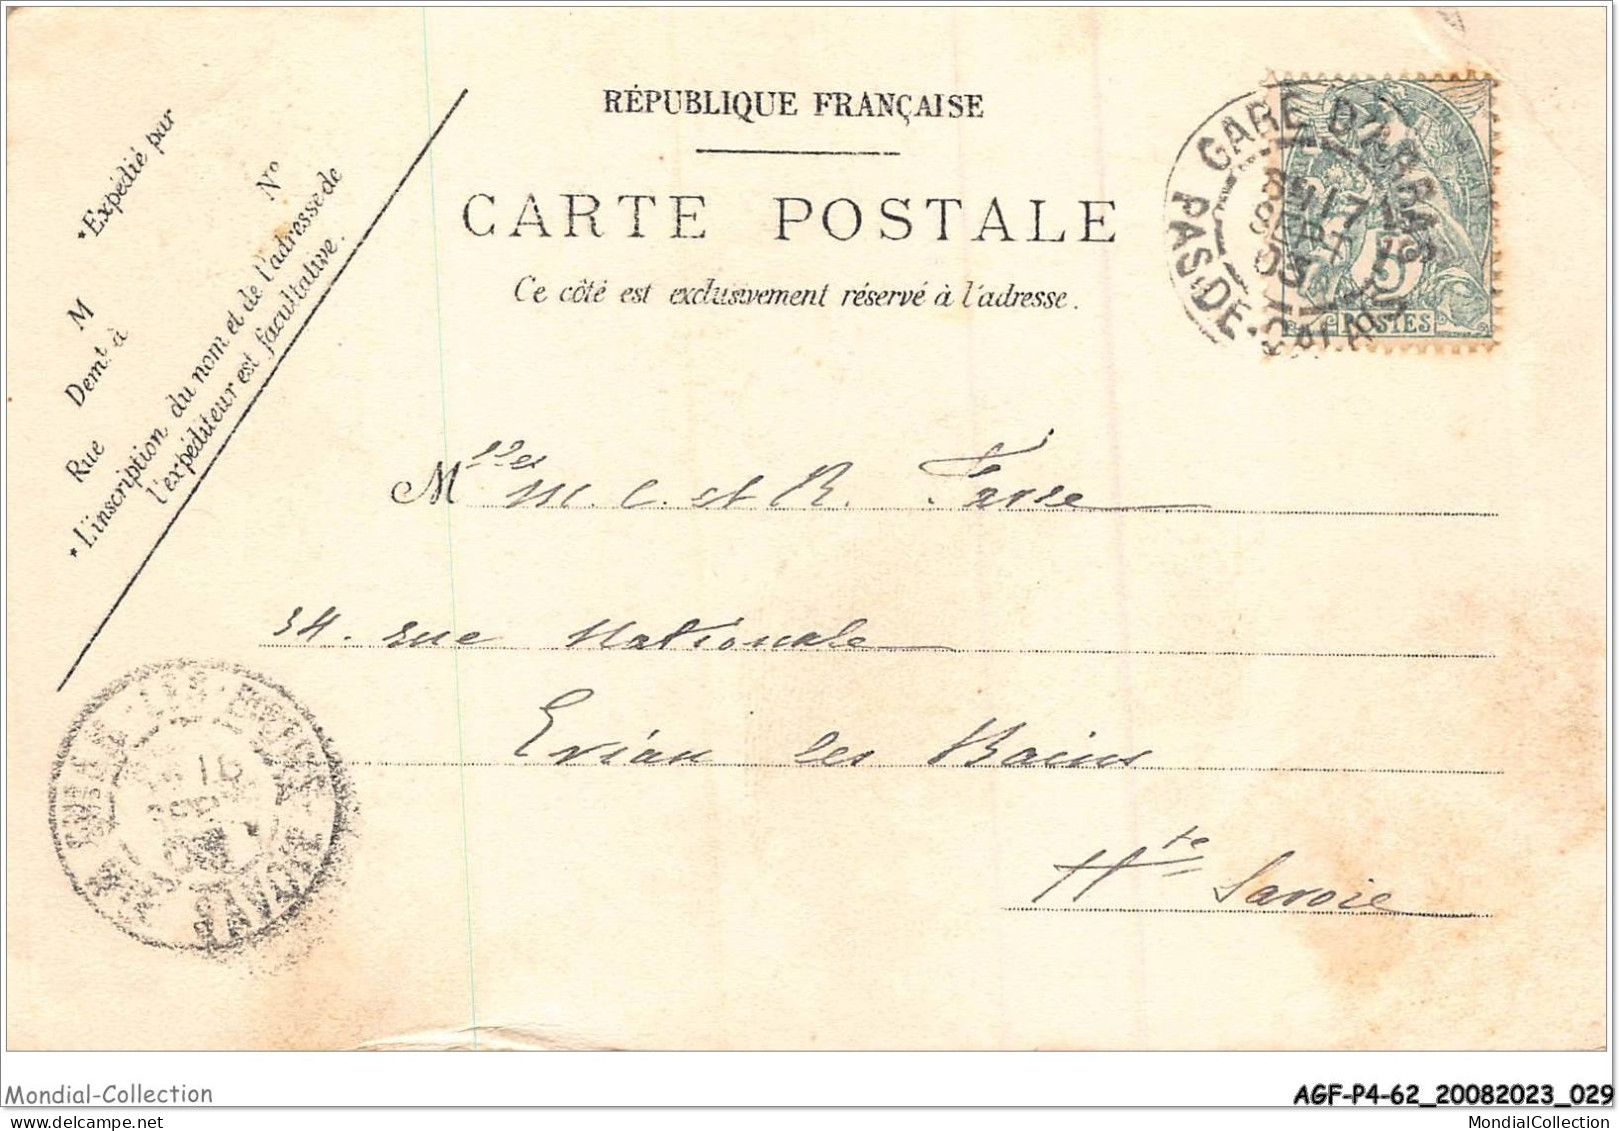 RÉPUBLIQUE FRANÇAISE
CARTE POSTALE
Ce côté est exclusivement réservé à l'adresse.
*Expédié par
M
Demt. à
Rue
No
* L'inscription du nom et de l'adresse de
l'expéditeur est facultative.
GARE D'ARRAS
PAS-DE-CALAIS
17
SEPT
03
5
POSTES
Mlles M. C. et R. Favre
34. rue Nationale
Evian les Bains
Hte Savoie
LES BAINS
SAVOIE
Mondial-Collection
AGF-P4-62_20082023_029
MondialCollection